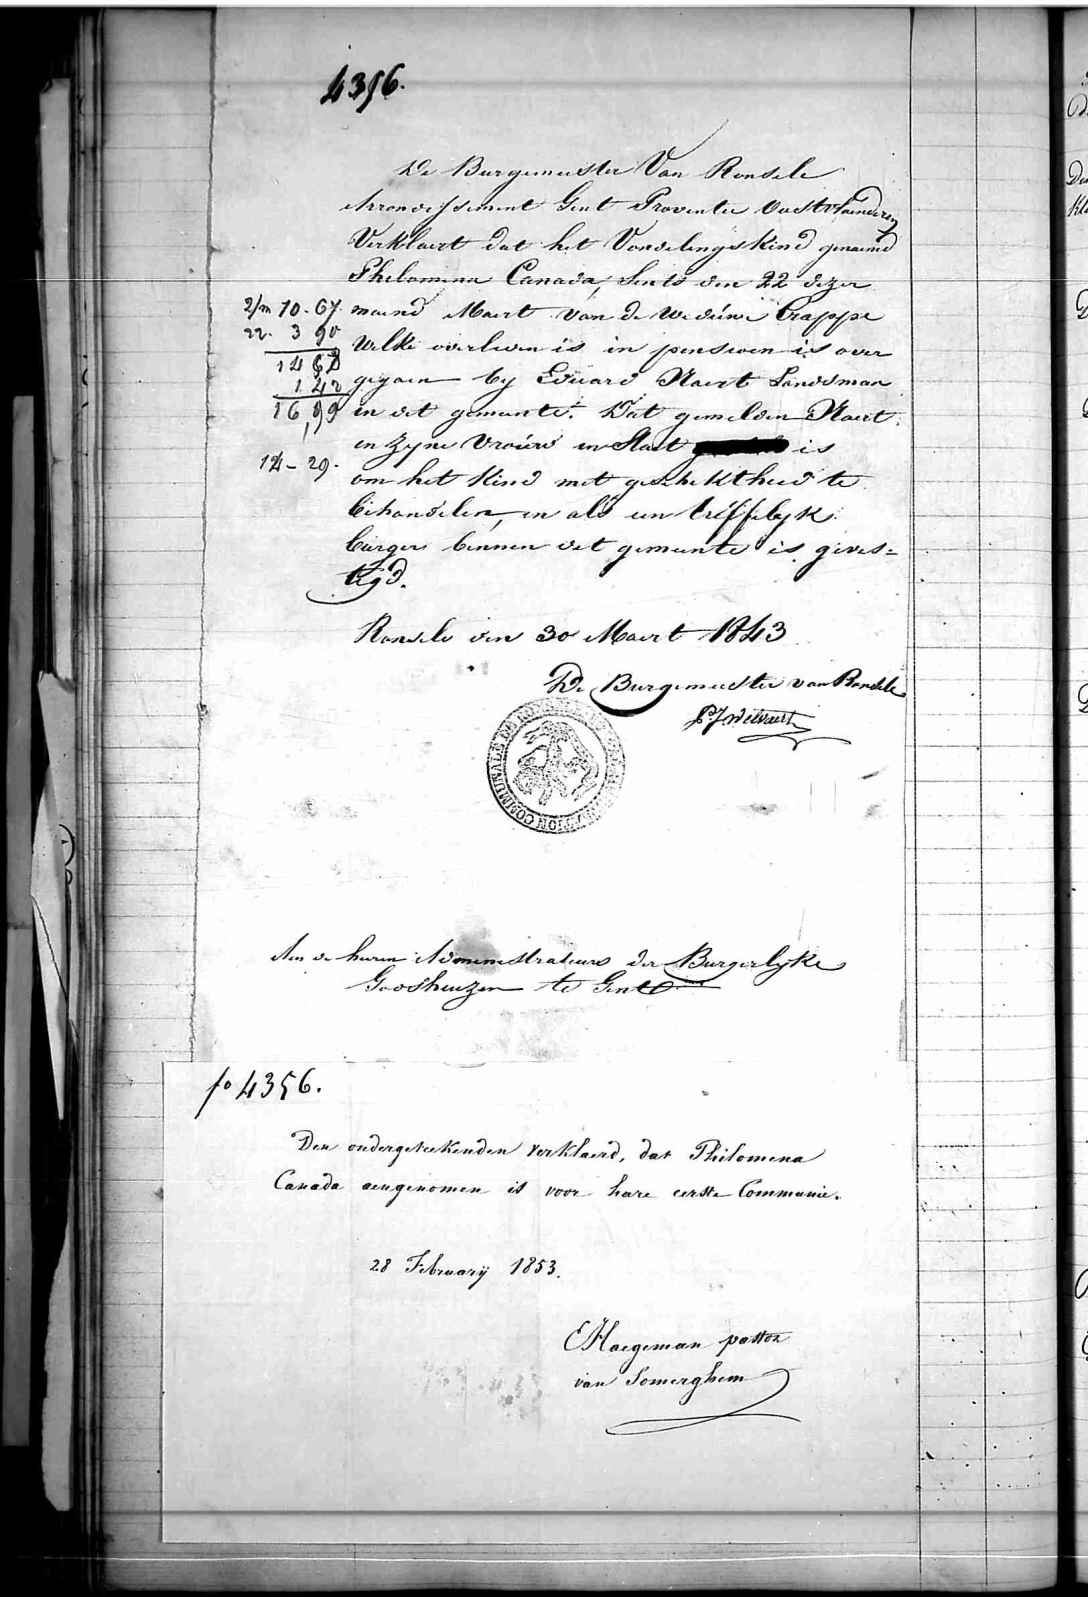 4356.
De Burgemeester Van Ronsele
Arrondissement Gent Proventie Oostvlaenderen
Verklaert dat het Vondelingskind genaemd
Philomena Canada, sents den 22 dezer
2/m 10-67. maend Maert van de weduwe Crappe
22. 3 90
Welke overleden is in pensioen is over
14 57
gegaen by Eduard Naert Landsman
1 42
16,99 in det gemeente. Dat gemelden Naert
en zyne Vrouw in Staet is
14-29.
om het kind met geschiktheid te
behandelen, en als een treffelyk
burger binnen det gemeente is geves=
tigd.
Ronsele den 30 Maert 1843
De Burgemeester van Ronsele
COMMUNALE DE
Aen de heeren Administrateurs der Burgerlyke
Godshuizen te Gent
fo 4356.
Den ondergeteekenden verklaerd, dat Philomena
Canada aengenomen is voor hare eerste Communie.
28 February 1853.
Haegeman pastor
van Somerghem